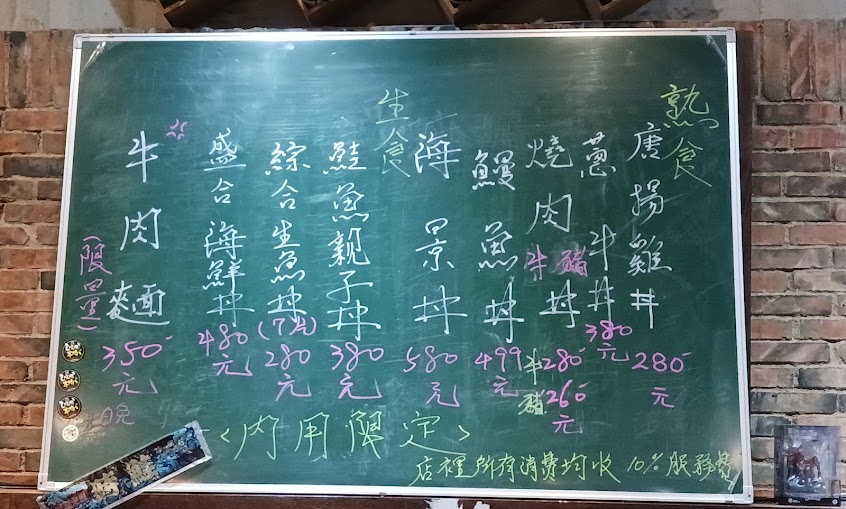 熟食
唐揚雞丼
280元
蔥牛丼
380元
燒肉丼
牛 豬
牛280
豬260元
鰻魚丼
499元
海景丼
580元
生食
鮭魚親子丼
380元
綜合生魚丼
(7片)
280元
盛合海鮮丼
480元
牛肉麵
(限量)
350元
<內用限定>
店裡所有消費均收 10% 服務費